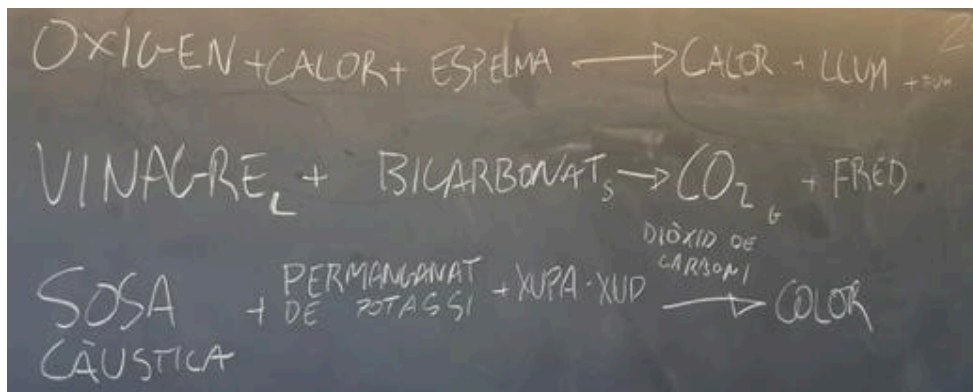 2
OXIGEN + CALOR + ESPELMA → CALOR + LLUM + FUM
VINAGRE L + BICARBONAT S → CO2 G + FRED
DIÒXID DE CARBONI
SOSA CÀUSTICA + PERMANGANAT DE POTASSI + XUPA-XUP → COLOR